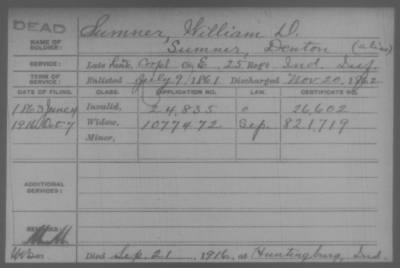 DEAD
NAME OF SOLDIER:
Sumner, William D.
Sumner, Denton (alias)
SERVICE:
Late rank, Corpl Co. E, 25 Regt. Ind. Inf.
TERM OF SERVICE:
Enlisted July 9, 1861 Discharged Nov 20, 1862
DATE OF FILING. CLASS. APPLICATION NO. LAW. CERTIFICATE NO.
1863 June 4 Invalid, 24,835 26,602
1916 Oct 7 Widow, 1077472 Sep. 821,719
Minor,
ADDITIONAL SERVICES:
REMARKS:
Died Sep. 21 1916, at Huntingburg, Ind.